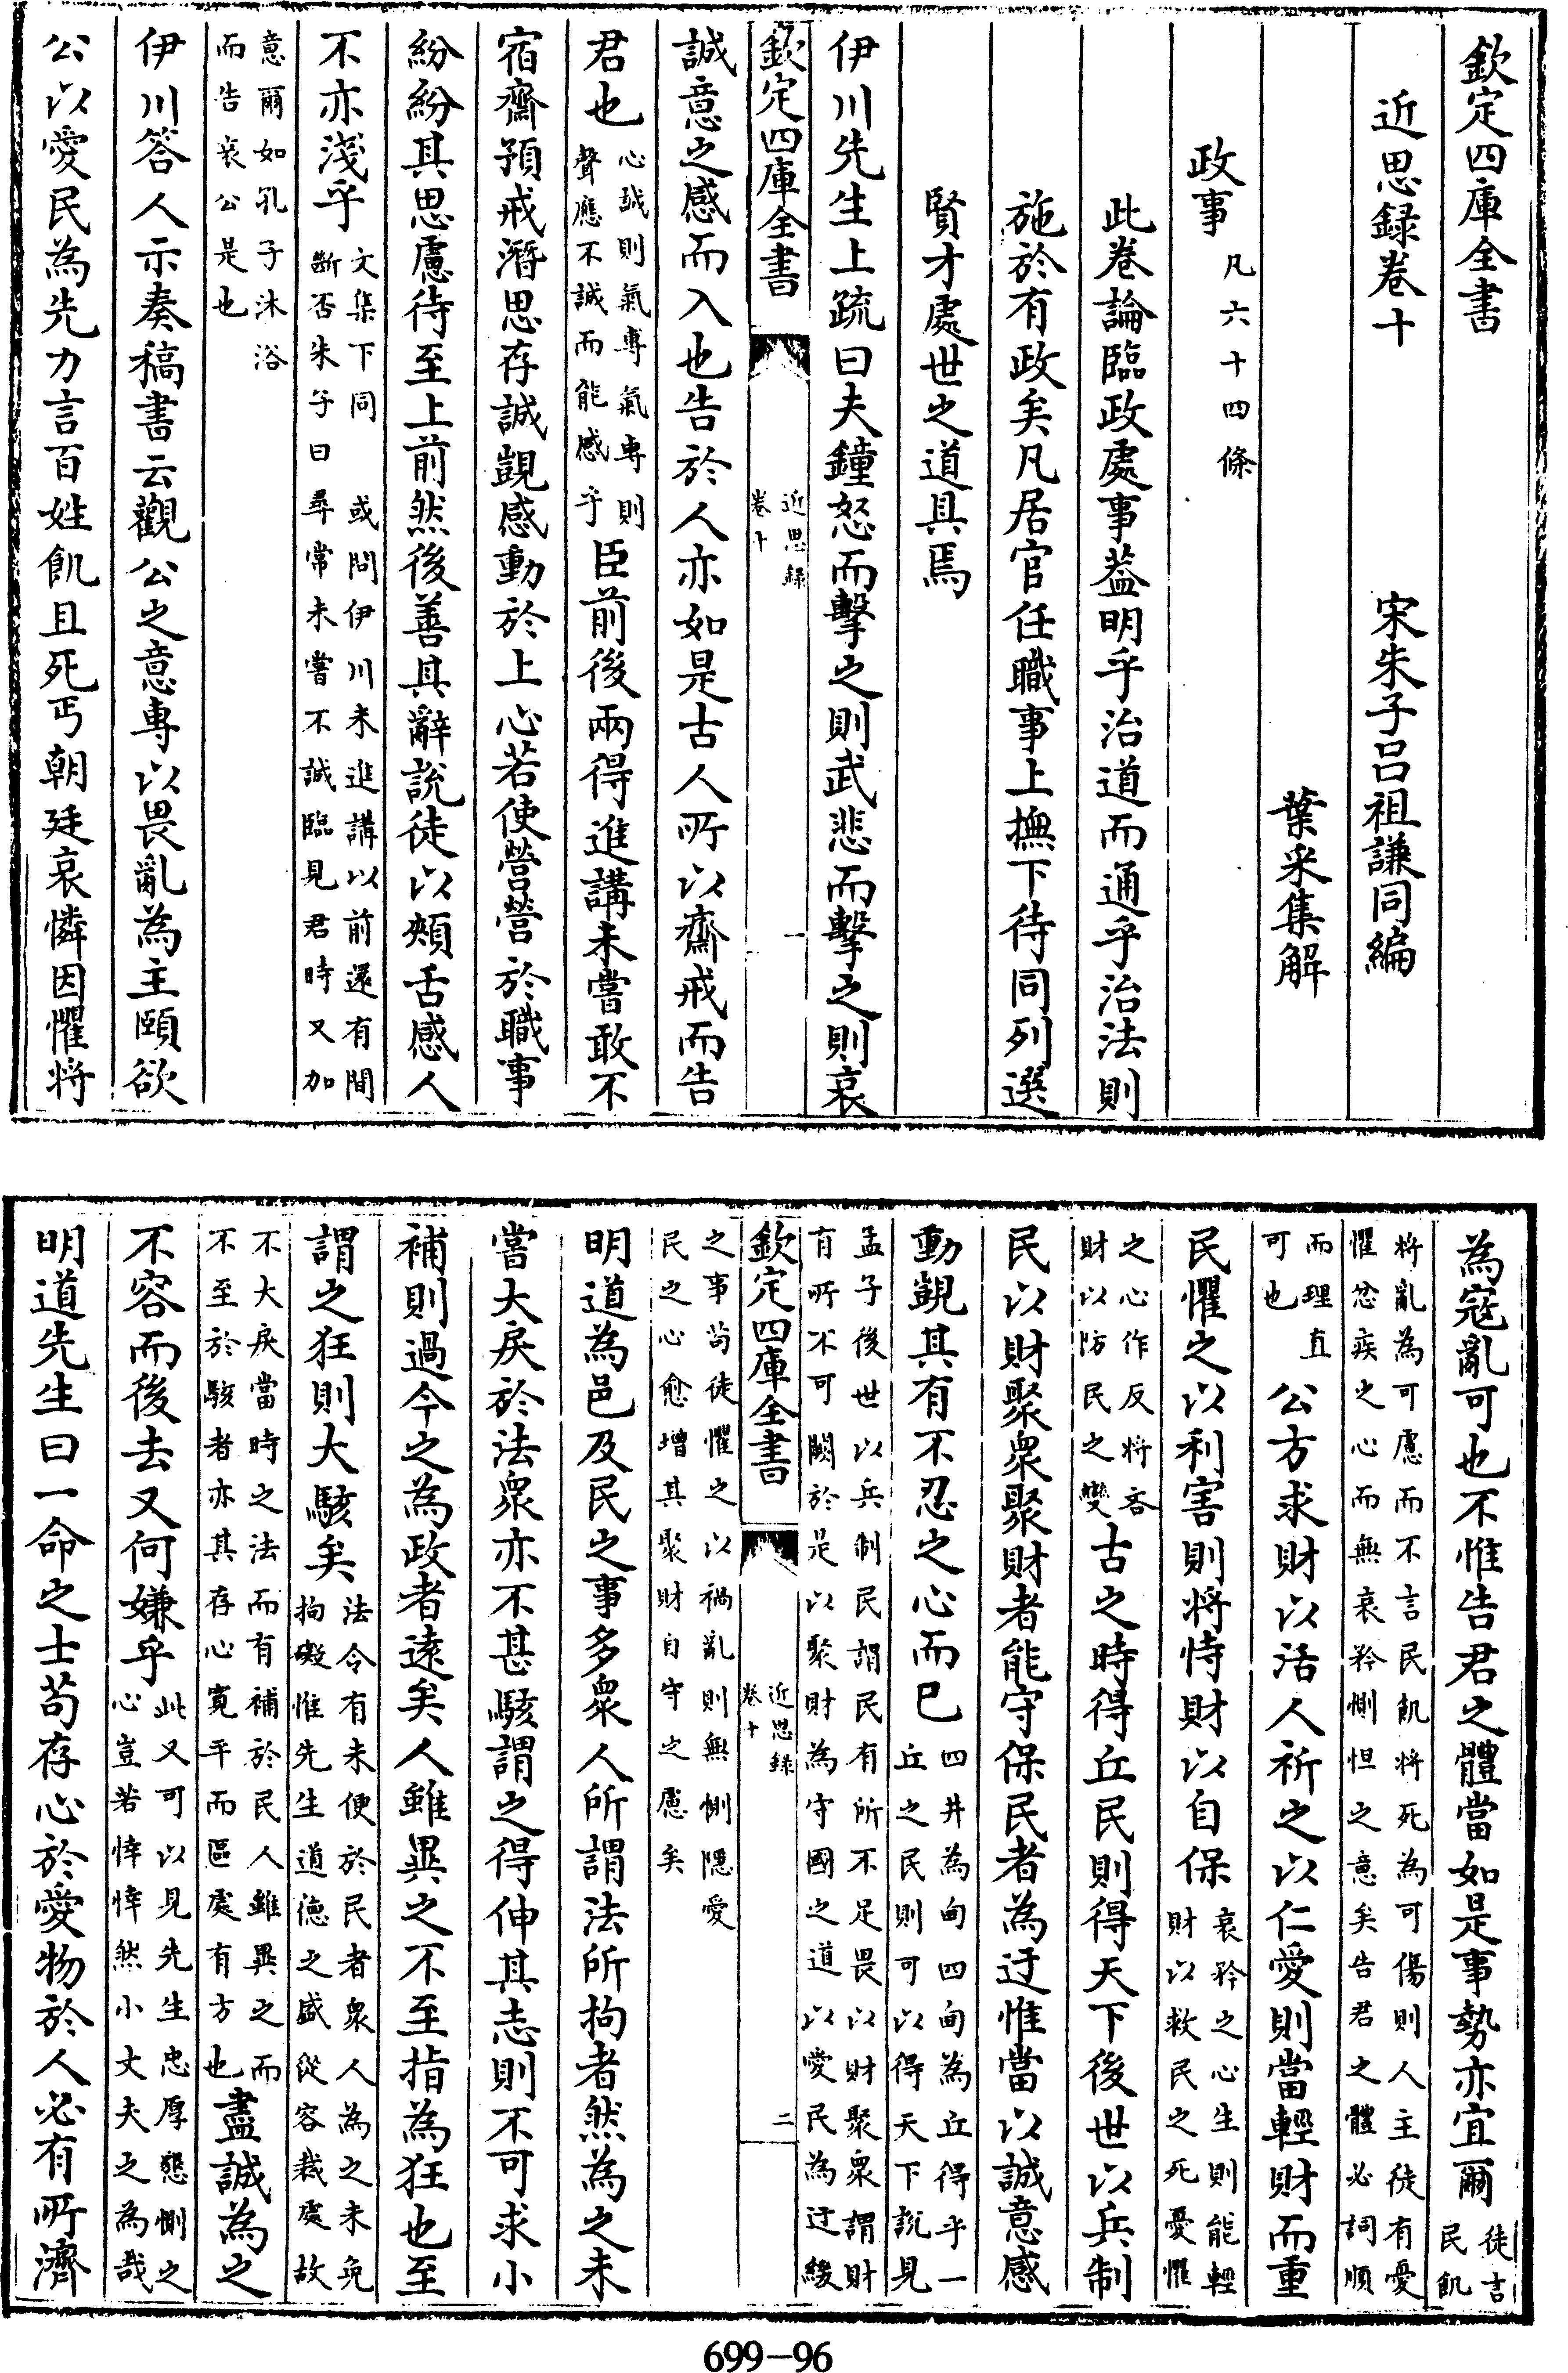 欽定四庫全書
近思録卷十
宋朱子吕祖謙同編
葉采集解
政事凡六十四條
此卷論臨政處事葢明乎治道而通乎治法則
施於有政矣凡居官任職事上撫下待同列選
賢才處世之道具焉
伊川先生上疏曰夫鐘怒而擊之則武悲而擊之則哀
欽定四庫全書
近思録
卷十
一
誠意之感而入也告於人亦如是古人所以齋戒而告
君也心誠則氣專氣專則
聲應不誠而能感乎臣前後兩得進講未嘗敢不
宿齋預戒潛思存誠覬感動於上心若使營營於職事
紛紛其思慮待至上前然後善其辭說徒以頰舌感人
不亦淺乎文集下同 或問伊川未進講以前還有間
斷否朱子曰尋常未嘗不誠臨見君時又加
意爾如孔子沐浴
而告哀公是也
伊川答人示奏稿書云觀公之意專以畏亂為主頤欲
公以愛民為先力言百姓飢且死丐朝廷哀憐因懼將
為寇亂可也不惟告君之體當如是事勢亦宜爾徒言
民飢
將亂為可慮而不言民飢將死為可傷則人主徒有憂
懼忿疾之心而無哀矜惻怛之意矣告君之體必詞順
而理直
可也公方求財以活人祈之以仁愛則當輕財而重
民懼之以利害則將恃財以自保哀矜之心生則能輕
財以救民之死憂懼
之心作反將吝
財以防民之變古之時得丘民則得天下後世以兵制
民以財聚衆聚財者能守保民者為迂惟當以誠意感
動覬其有不忍之心而已四井為甸四甸為丘得乎一
丘之民則可以得天下說見
孟子後世以兵制民謂民有所不足畏以財聚衆謂財
有所不可闕於是以聚財為守國之道以愛民為迂緩
欽定四庫全書
近思録
卷十
二
之事苟徒懼之以禍亂則無惻隱愛
民之心愈增其聚財自守之慮矣
明道為邑及民之事多衆人所謂法所拘者然為之未
嘗大戾於法衆亦不甚駭謂之得伸其志則不可求小
補則過今之為政者遠矣人雖異之不至指為狂也至
謂之狂則大駭矣法令有未便於民者衆人為之未免
拘礙惟先生道德之盛從容裁處故
不大戾當時之法而有補於民人雖異之而
不至於駭者亦其存心寛平而區處有方也盡誠為之
不容而後去又何嫌乎此又可以見先生忠厚懇惻之
心豈若悻悻然小丈夫之為哉
明道先生曰一命之士苟存心於愛物於人必有所濟
699-96